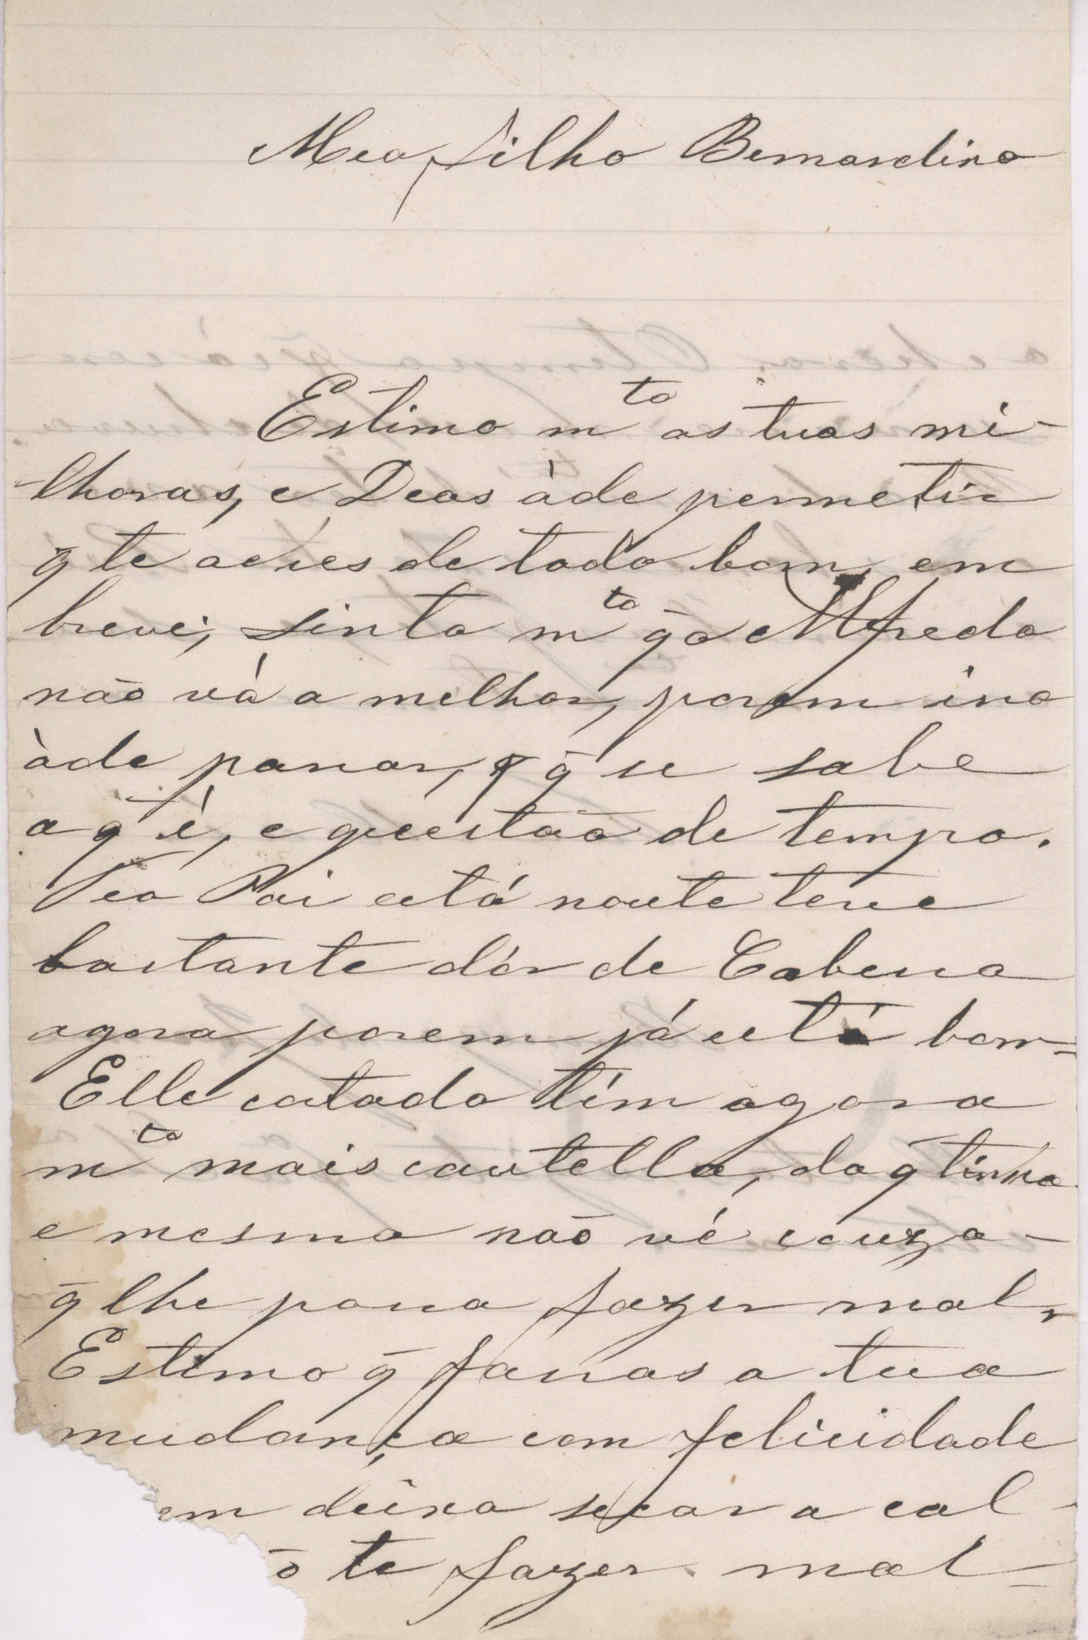 Meo filho Bernardino
Estimo mto as tuas mi-
lhoras, e Deos àde permetir
q̃ te aches de todo bom, em
breve, sinto mto q̃ o Alfredo
não vá a melhor, porem isso
àde passar, q̃ se sabe
o q̃ é, e questão de tempo.
Teo Pai está noute teve
bastante dôr de Cabessa
agora porem já está bom-
Elle comtudo tem agora
mto mais cautella, do q̃ tinha
e mesmo não vé couza-
q̃ lhe possa fazer mal.
Estimo q̃ fassas a tua
mudança com felicidade
em deixa secar a cal-
o te fazer mal-